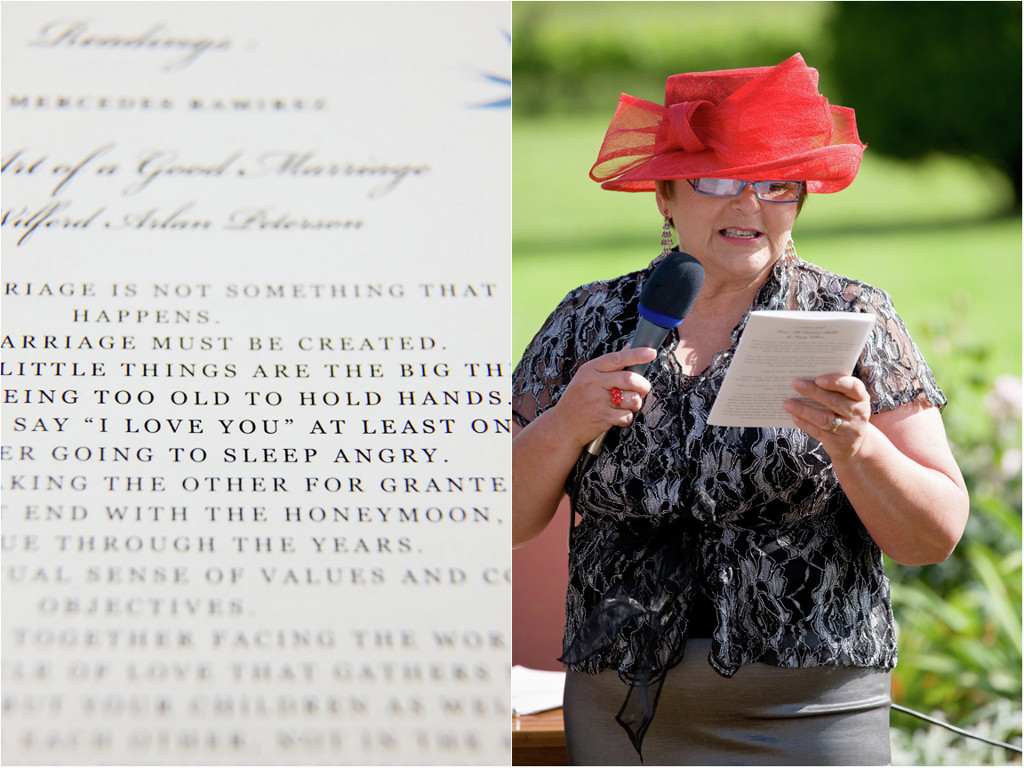 Readings
MERCEDES RAMIREZ
Art of a Good Marriage
Wilford Arlan Peterson
RIAGE IS NOT SOMETHING THAT
HAPPENS.
ARRIAGE MUST BE CREATED.
LITTLE THINGS ARE THE BIG TH
EING TOO OLD TO HOLD HANDS.
SAY “I LOVE YOU” AT LEAST ON
ER GOING TO SLEEP ANGRY.
AKING THE OTHER FOR GRANTE
T END WITH THE HONEYMOON,
UE THROUGH THE YEARS.
TUAL SENSE OF VALUES AND CO
OBJECTIVES.
TOGETHER FACING THE WOR
LE OF LOVE THAT GATHERS
BUT YOUR CHILDREN AS WEL
EACH OTHER, NOT IN THE